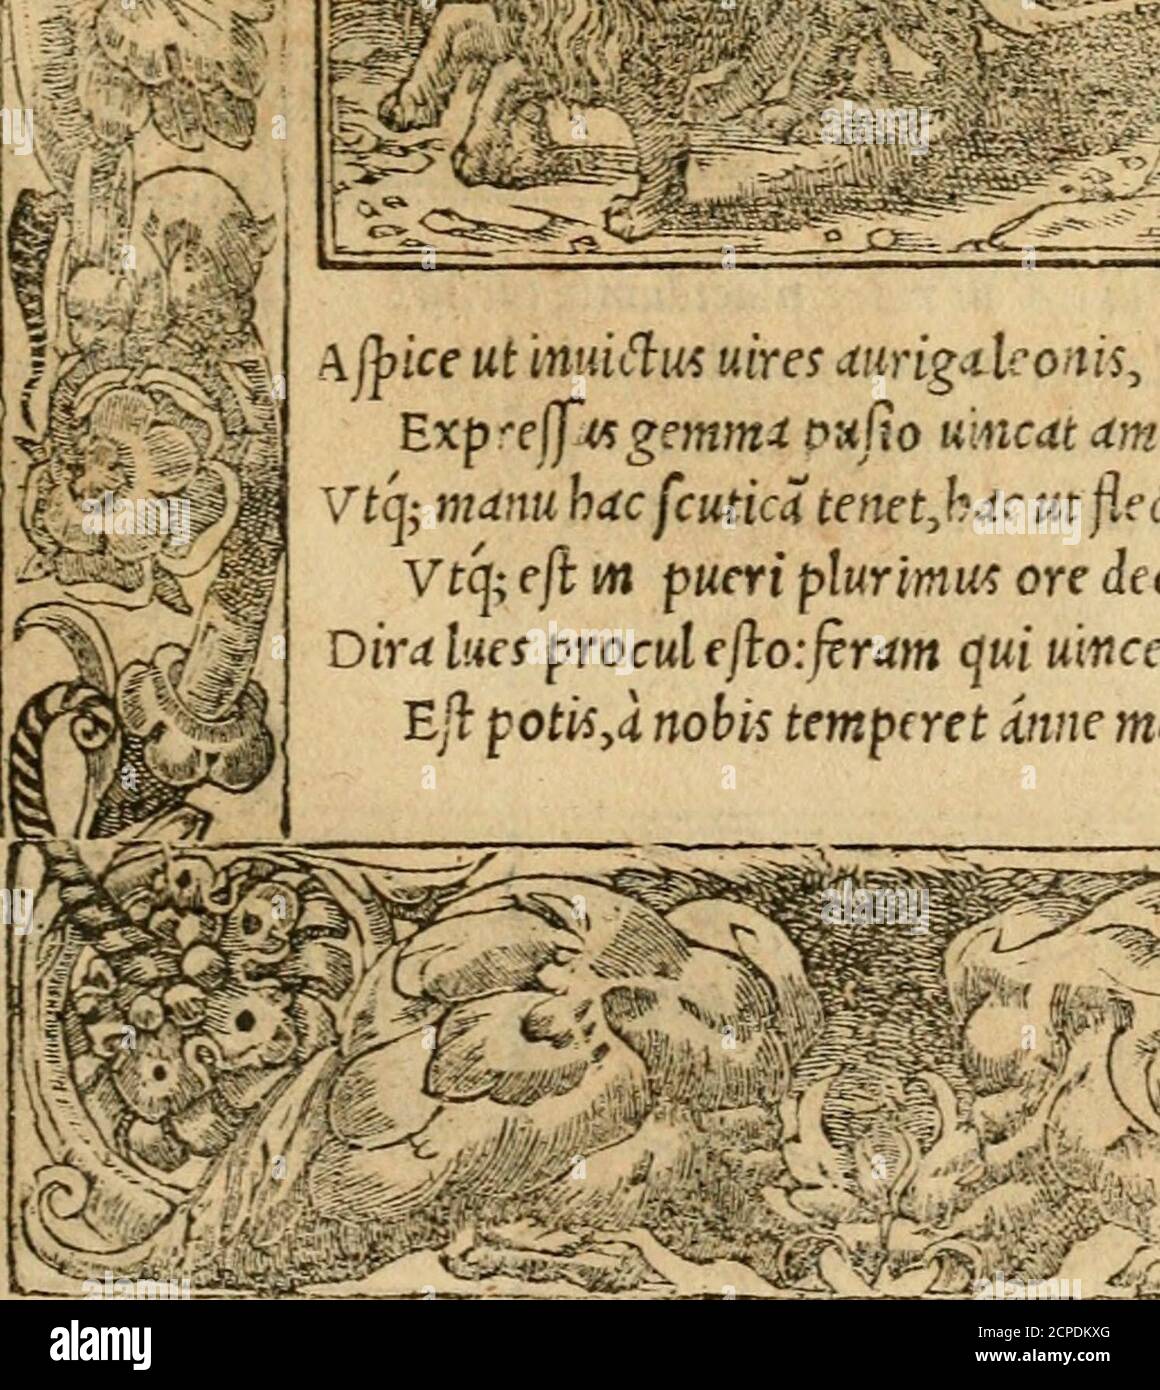 Aſpice ut inuictus uires auriga leonis,
Expreſſus gemma puſio uincat am
Vtq́; manu hac ſcuticã tenet, hac ut flec
Vtq́; eſt in pueri plurimus ore dec
Dira lues procul eſto: feram qui uince
Eſt potis, à nobis temperet ánne ma
alamy
Image ID: 2CPDKXG
www.alamy.com